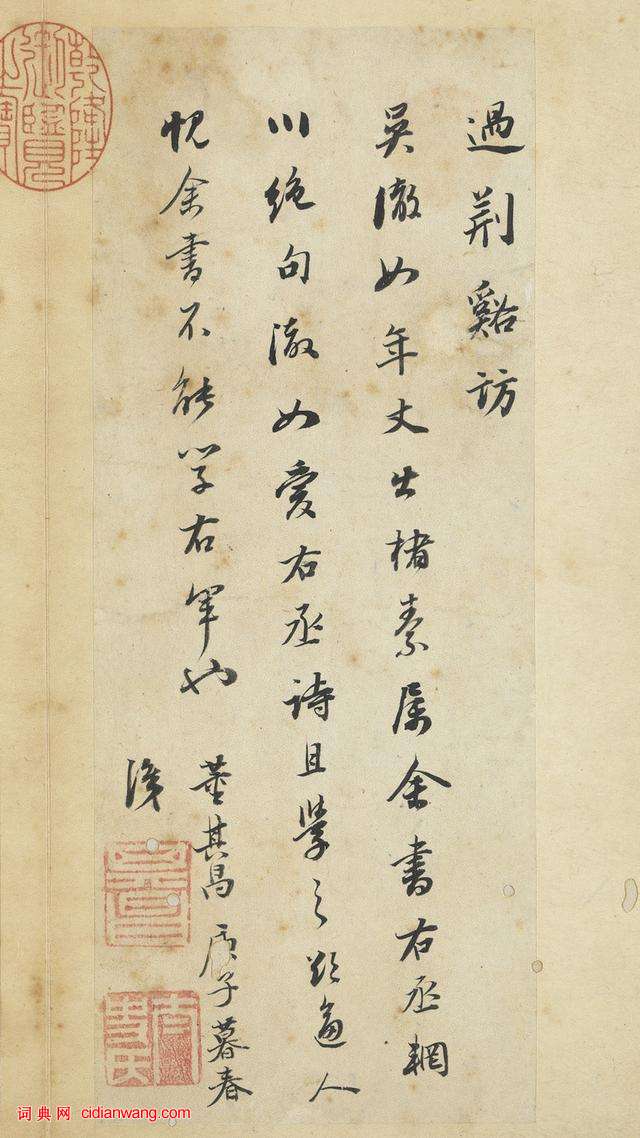 過荊谿訪
吳澈如年丈出楮素属余書右丞輞
川絕句澈如愛右丞詩且學之欲逼人
愧余書不能學右軍也
董其昌庚子暮春
乾隆御覽之寶
词典网 cidianwang.com